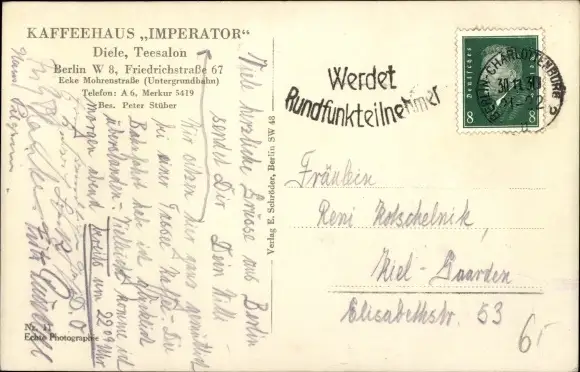 KAFFEEHAUS „IMPERATOR“
Diele, Teesalon
Berlin W 8, Friedrichstraße 67
Ecke Mohrenstraße (Untergrundbahn)
Telefon: A 6, Merkur 5419
Bes. Peter Stüber
Viele herzliche Grüsse aus Berlin
sendet Dir Dein Willi
Wir sitzen hier ganz gemütlich
bei einer Tasse Kaffee. Die
Bahnfahrt habe ich glücklich
überstanden. Vielleicht komme ich
morgen abend bereits um 22.09 Uhr
Nr. 11
Echte Photographie
Verlag E. Schröder, Berlin SW 48
Werdet
Rundfunkteilnehmer
Deutsches Reich
8 8
BERLIN-CHARLOTTENBURG
30.11.30
Fräulein
Reni Kotschelnik,
Kiel-Gaarden
Elisabethstr. 53